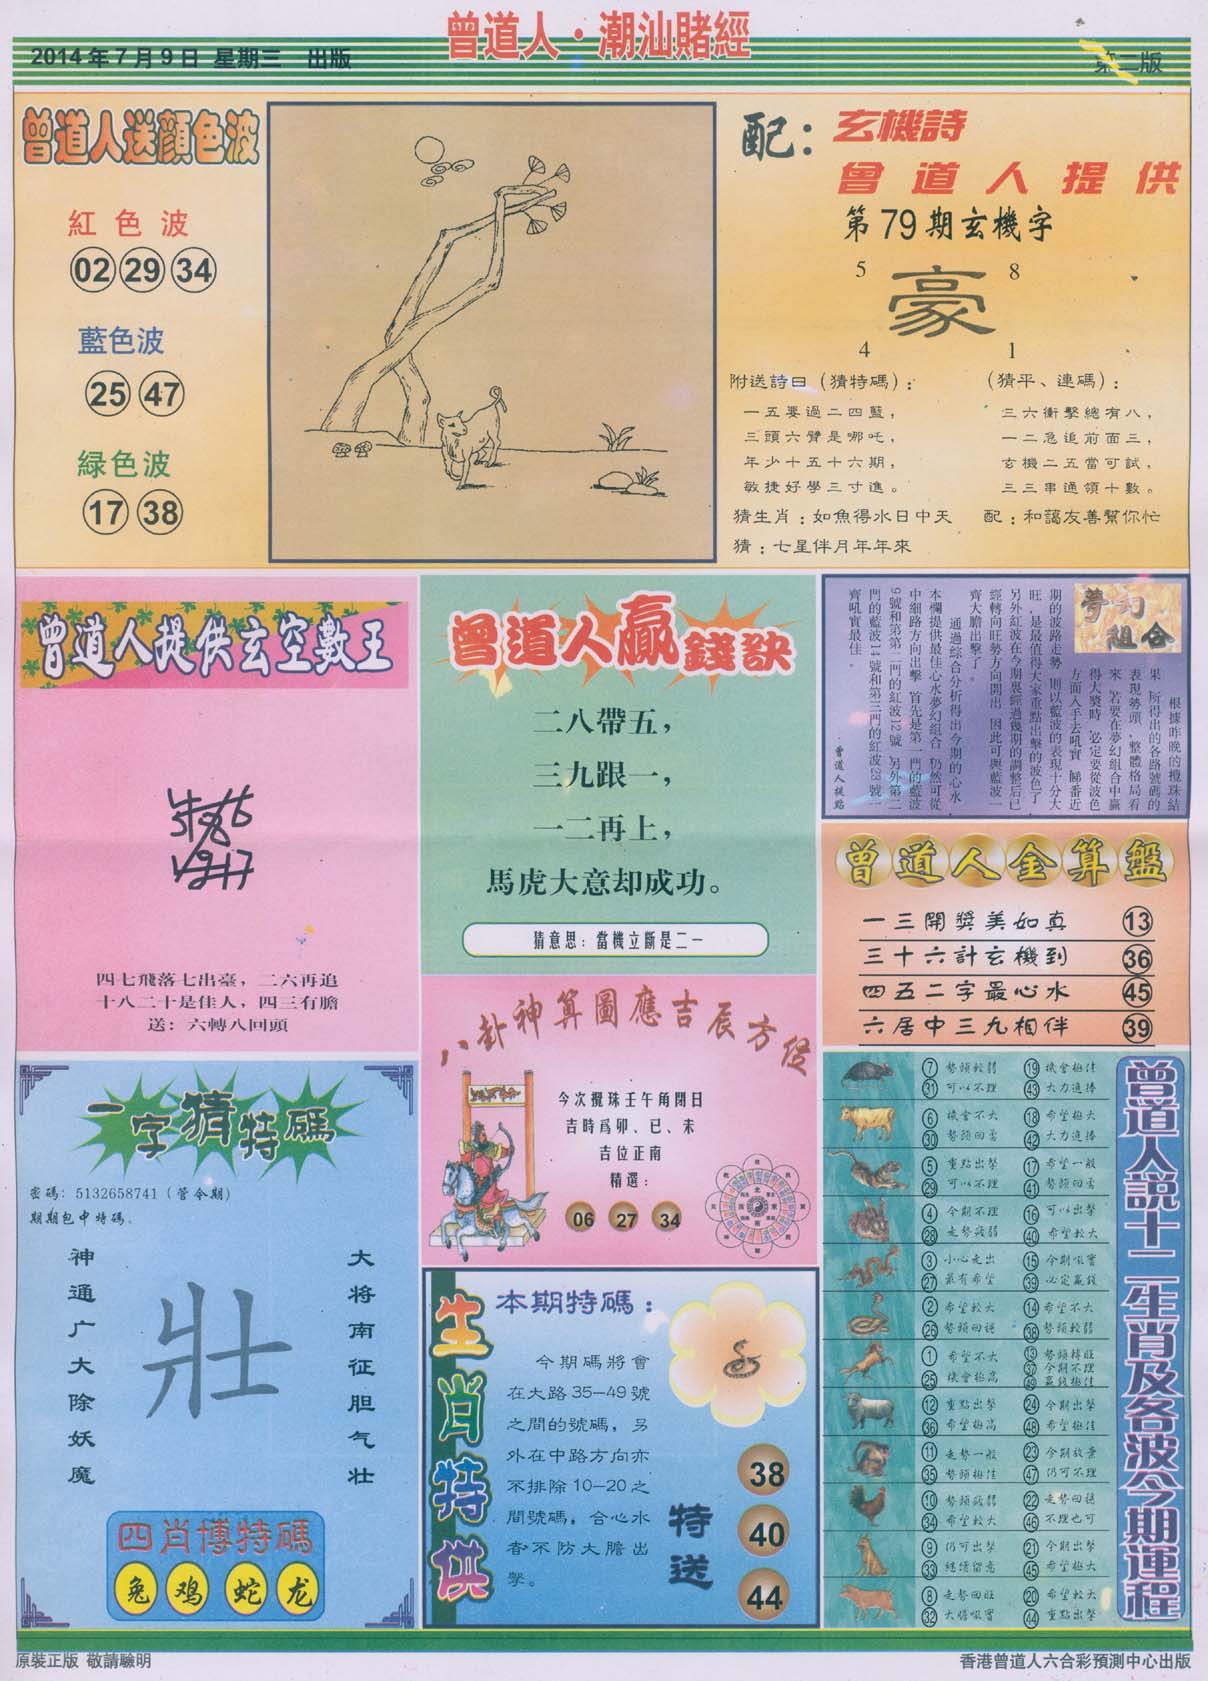 曾道人·潮汕賭經
2014年7月9日 星期三 出版
第二版
曾道人送顏色波
紅色波
02 29 34
藍色波
25 47
緑色波
17 38
配：
玄機詩
曾道人提供
第79期玄機字
5 8
豪
4 1
附送詩曰（猜特碼）：
一五要過二四藍，
三頭六臂是哪吒，
年少十五十六期，
敏捷好學三寸進。
（猜平、連碼）：
三六衝擊總有八，
一二急追前面三，
玄機二五當可試，
三三串通領十數。
猜生肖：如魚得水日中天
配：和藹友善幫你忙
猜：七星伴月年年來
曾道人提供玄空數王
四七飛落七出臺，二六再追
十八二十是佳人，四三有膽
送：六轉八回頭
曾道人贏錢訣
二八帶五，
三九跟一，
一二再上，
馬虎大意却成功。
猜意思：當機立斷是二一
夢幻組合
根據昨晚的攪珠結
果 所得出的各路號碼的
表現勢頭，整體格局看
來 若要在夢幻組合中贏
得大獎時 必定要從波色
方面入手去吼實 歸番近
期的波路走勢 則以藍波的表現十分大
旺，是最值得大家重點出擊的波色了
另外紅波在今期裏經過幾期的調整后已
經轉向旺勢方向開出 因此可與藍波一
齊大膽出擊了。
通過綜合分析得出今期的心水
本欄提供最佳心水夢幻組合 仍然可從
中細路方向出擊 首先是第一門的藍波
9號和第一門的紅波12號 另外第二
門的藍波14號和第三門的紅波23號一
齊吼實最佳。
曾道人提路
曾道人金算盤
一三開獎美如真 13
三十六計玄機到 36
四五二字最心水 45
六居中三九相伴 39
八卦神算圖應吉辰方位
今次攪珠壬午角閉日
吉時爲卯、巳、未
吉位正南
精選：
06 27 34
一字猜特碼
密碼：5132658741（管令期）
期期包中特碼。
神通广大除妖魔
壯
大将南征胆气壮
四肖博特碼
兔 鸡 蛇 龙
生肖特供
本期特碼：
今期碼將會
在大路35—49號
之間的號碼，另
外在中路方向亦
不排除10—20之
間號碼，合心水
者不防大膽出
擊。
特送
38
40
44
曾道人説十二生肖及各波今期運程
7 勢頭較弱 19 機會極佳
31 可以不理 43 大力追捧
6 機會不大 18 希望極大
30 勢頭回落 42 大力追捧
5 重點出擊 17 希望一般
29 可以不理 41 勢頭回落
4 今期不理 16 可以出擊
28 走勢疲弱 40 希望較大
3 小心走出 15 今期吼實
27 最有希望 39 必定贏錢
2 希望較大 14 希望不大
26 勢頭回穩 38 勢頭較弱
1 希望不大 13 勢頭轉旺
25 機會極高 37 今期不理
49 贏錢極佳
12 重點出擊 24 今期出擊
36 希望極高 48 希望極佳
11 走勢一般 23 今期放棄
35 勢頭極佳 47 仍可不理
10 勢頭疲弱 22 走勢回穩
34 希望較大 46 不理也可
9 仍可出擊 21 今期出擊
33 繼續留意 45 希望極大
8 走勢回旺 20 希望較大
32 大膽吼實 44 重點出擊
原裝正版 敬請驗明
香港曾道人六合彩預測中心出版